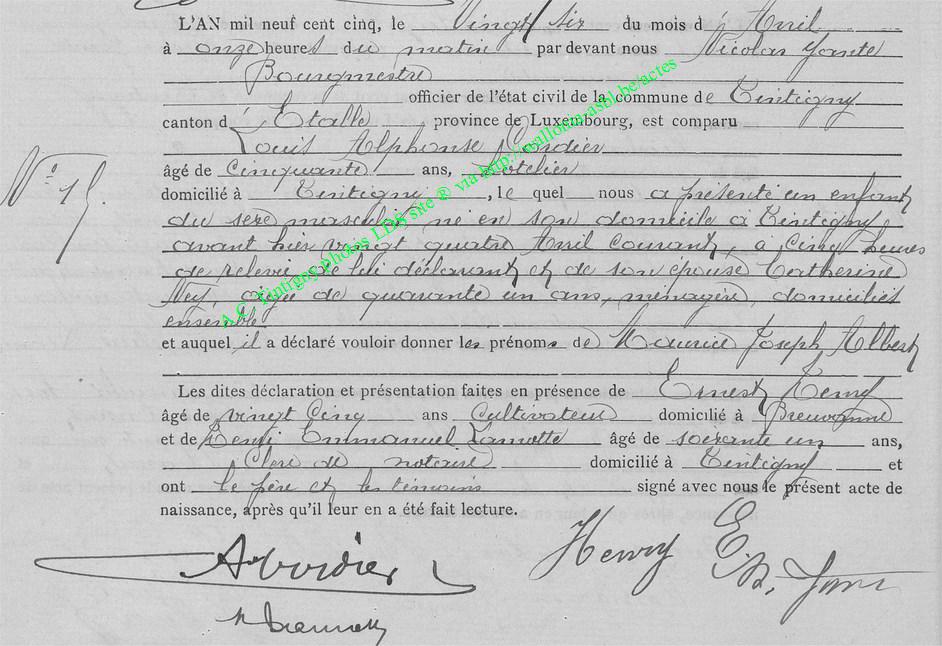 L'AN mil neuf cent cinq, le Vingt six du mois d'Avril
à onze heures du matin par devant nous Nicolas
Bourgmestre
officier de l'état civil de la commune de Tintigny
canton d'Etalle province de Luxembourg, est comparu
Louis Alphonse Cordier
âgé de Cinquante ans, hotelier
domicilié à Tintigny, le quel nous a présenté un enfant
du sexe masculin né en son domicile à Tintigny
avant hier vingt quatre Avril courant, à Cinq heures
de relevée de lui déclarant et de son épouse Catherine
Ney, âgée de quarante un ans, ménagère, domiciliés
ensemble
et auquel il a déclaré vouloir donner les prénoms de Maurice Joseph Albert
Les dites déclaration et présentation faites en présence de Ernest Henry
âgé de vingt Cinq ans Cultivateur domicilié à Breuvanne
et de Remi Emmanuel Lamotte âgé de soixante un ans,
Clerc de notaire domicilié à Tintigny et
ont le père et les témoins signé avec nous le présent acte de
naissance, après qu'il leur en a été fait lecture.
N° 15.
A.C. Tintigny photos LDS site ® via http://wallonia-asbl.be/actes
A Cordier
Henry E